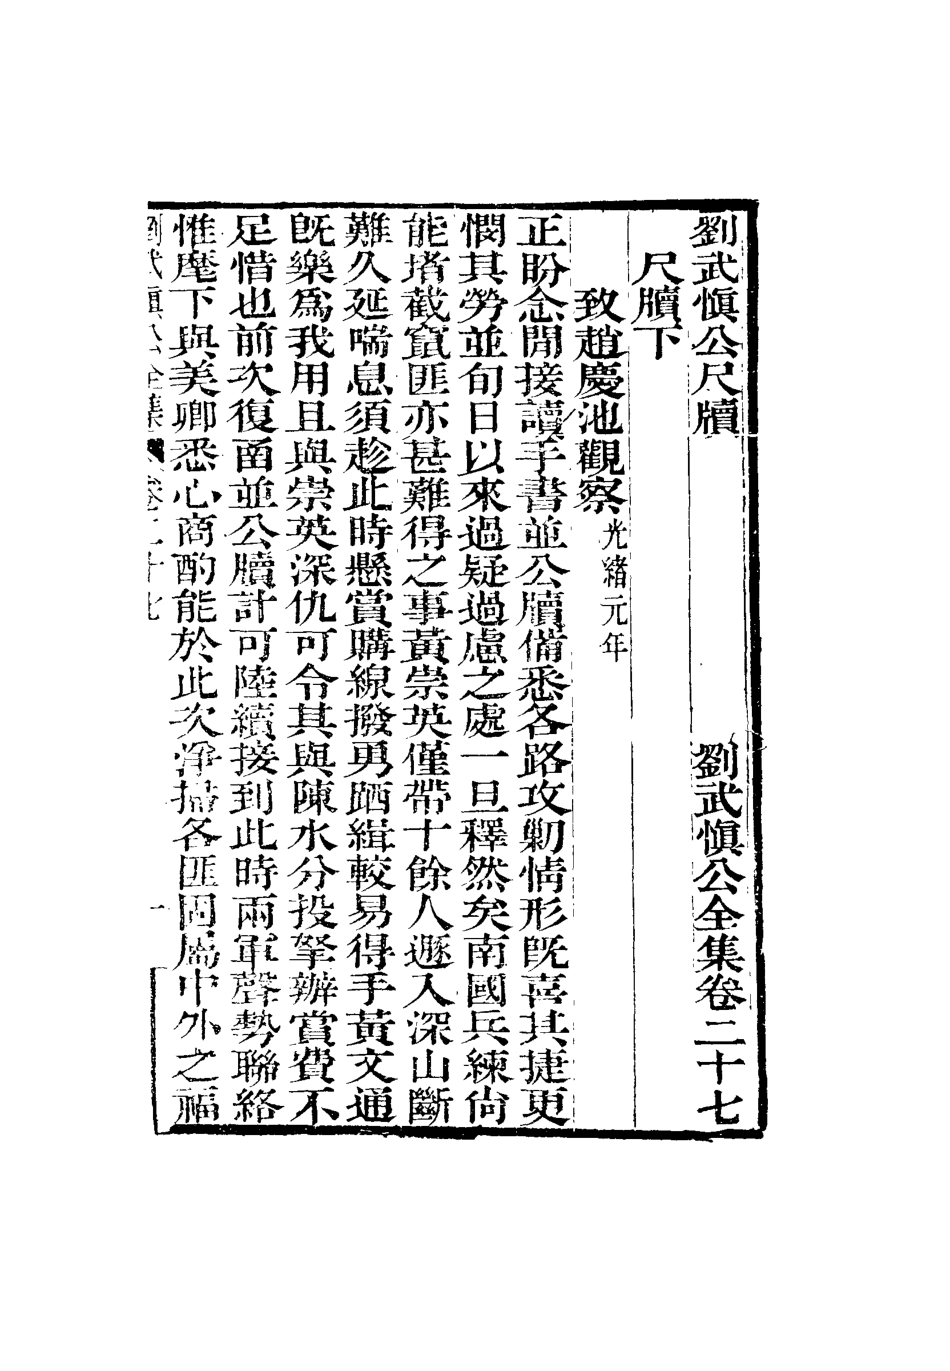 劉武愼公尺牘　劉武愼公全集卷二十七
尺牘下
致趙慶池觀察光緒元年
正盼念閒接讀手書並公牘備悉各路攻剿情形旣喜其捷更
憫其勞並旬日以來過疑過慮之處一旦釋然矣南國兵練尙
能堵截竄匪亦甚難得之事黃崇英僅帶十餘人遯入深山斷
難久延喘息須趁此時懸賞購線撥勇跴緝較易得手黃文通
旣樂爲我用且與崇英深仇可令其與陳水分投拏辦賞費不
足惜也前次復圅並公牘計可陸續接到此時兩軍聲勢聯絡
惟麾下與美卿悉心商酌能於此次淨掃各匪固屬中外之福
劉武愼公全集　卷二十七　一